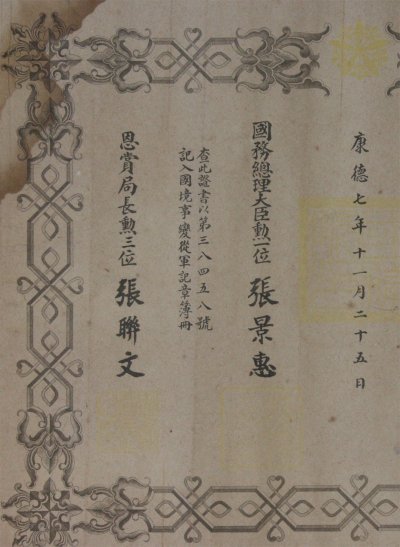 康德七年十一月二十五日
國務總理大臣勲一位 張景惠
查此證書以第三八四五八號
記入國境事變從軍記章簿冊
恩賞局長勲三位 張聯文